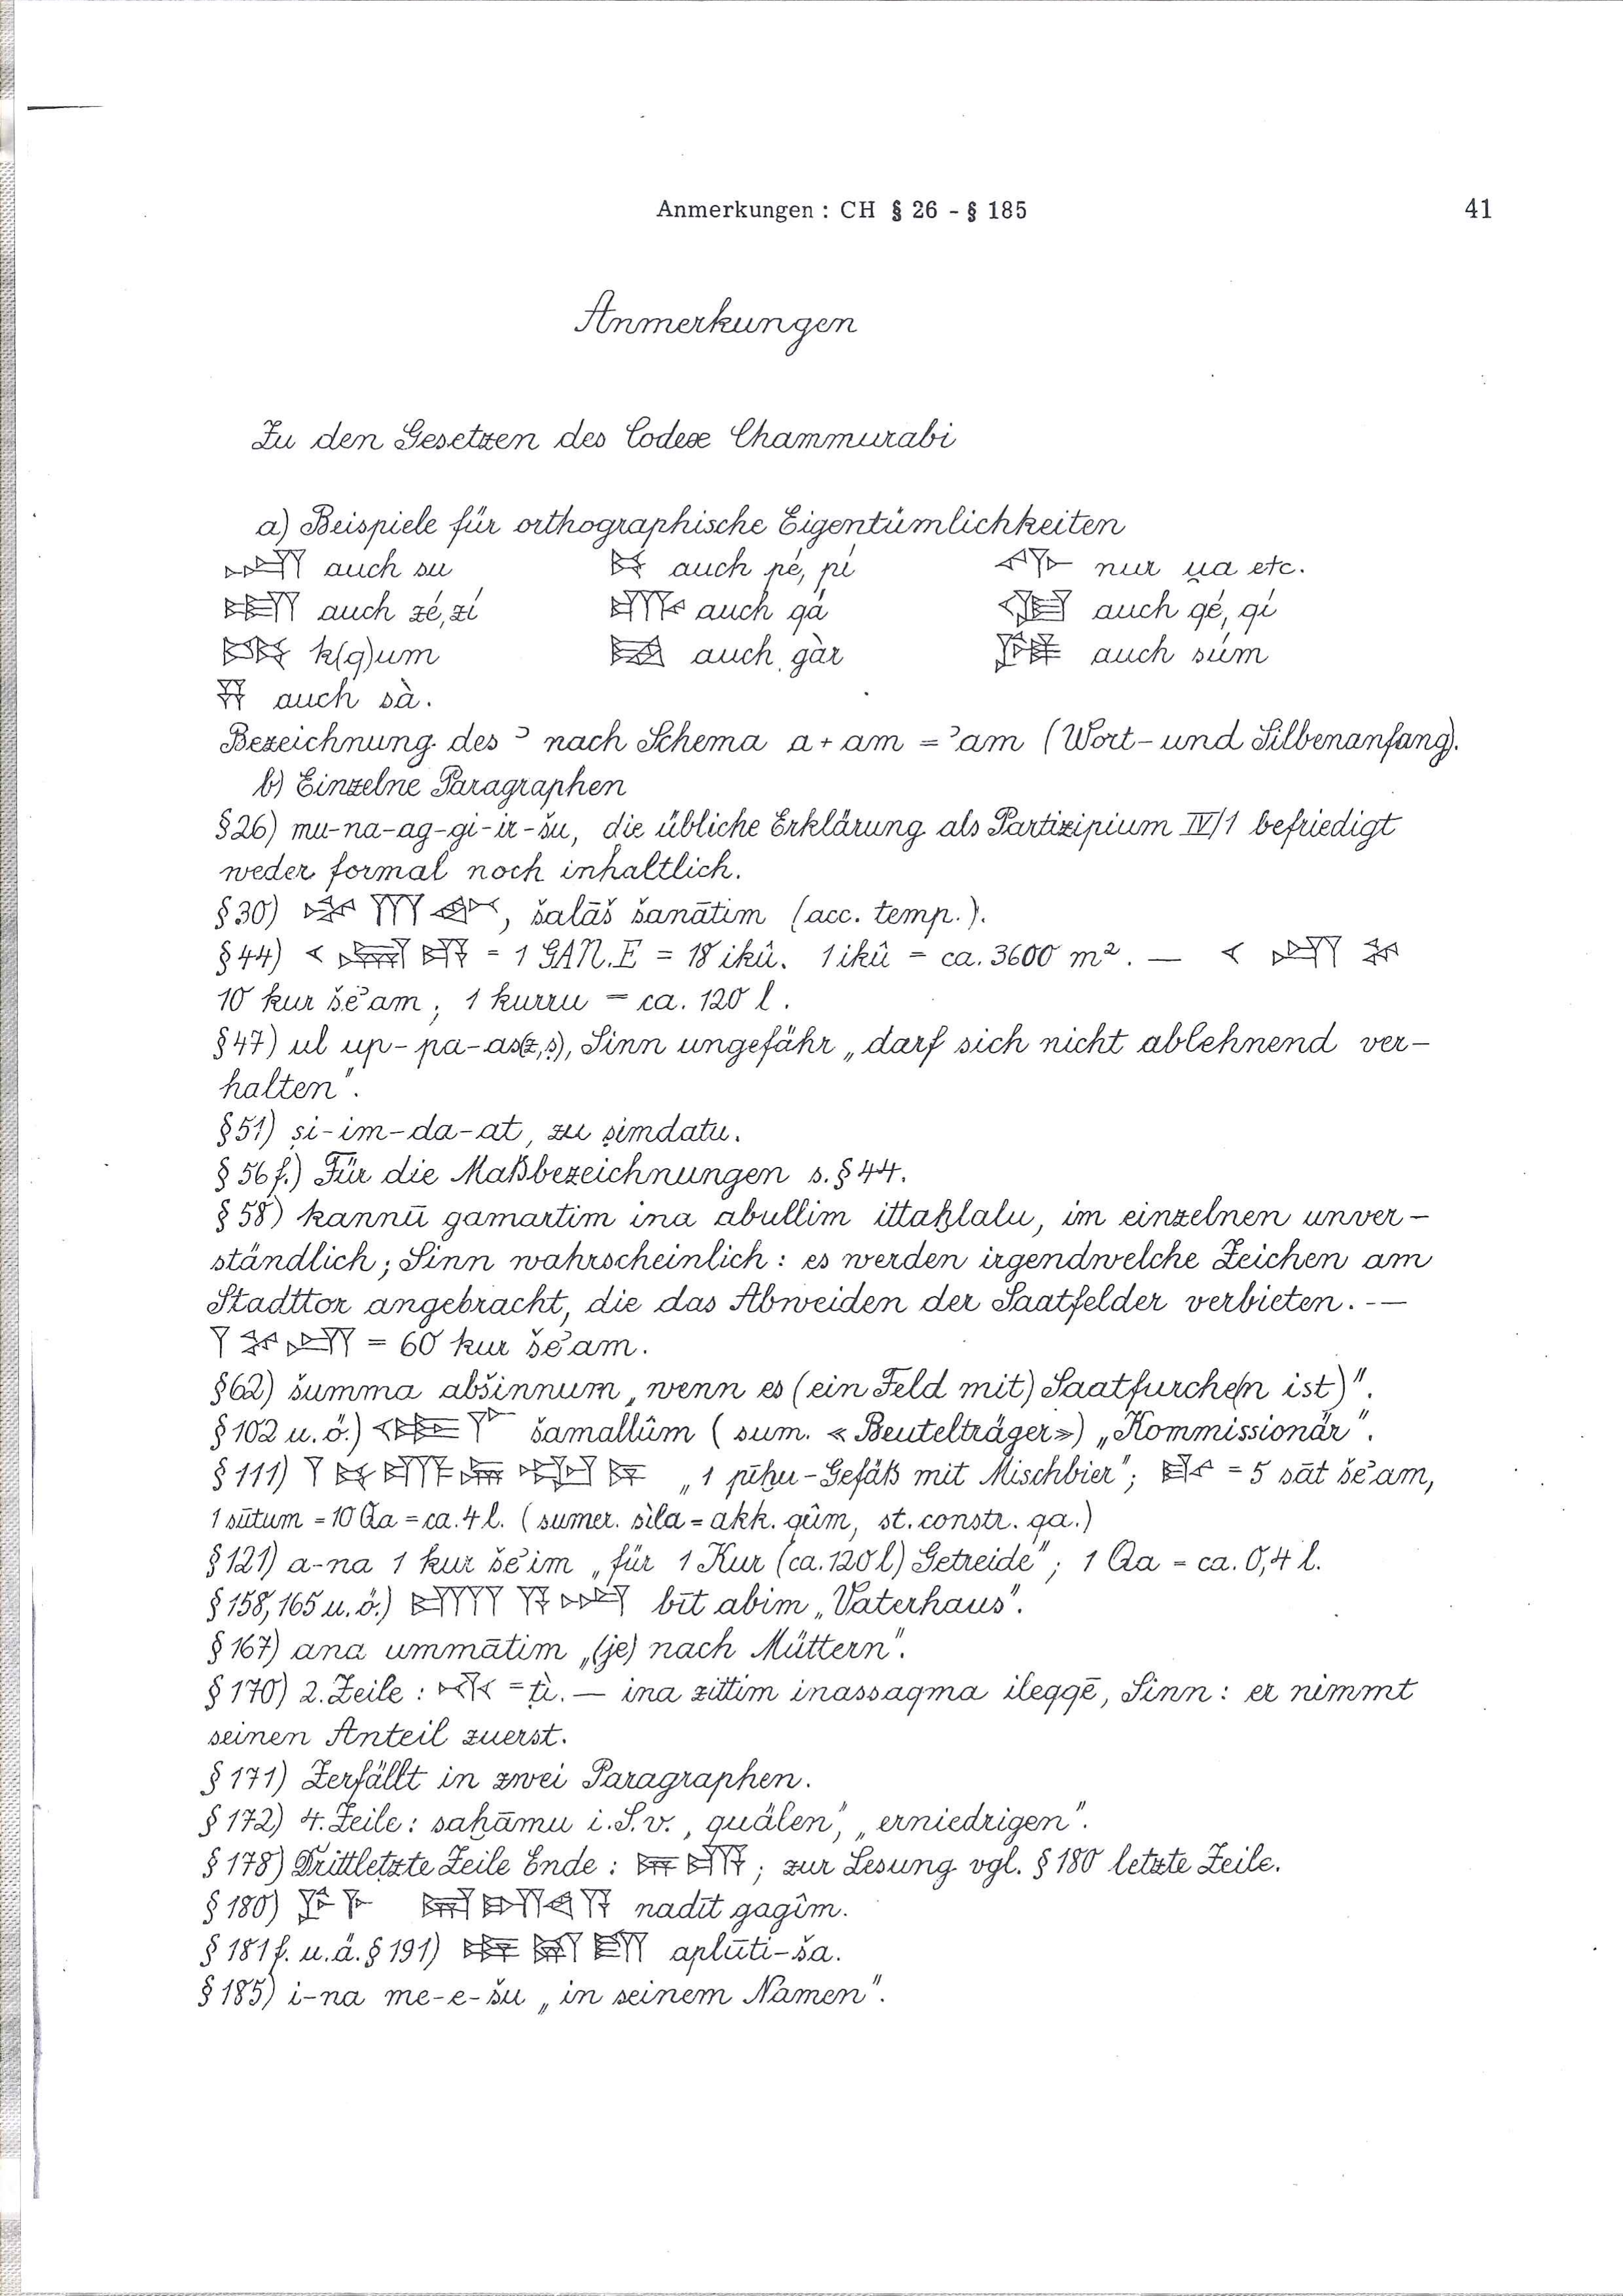 Anmerkungen : CH § 26 - § 185 41
Anmerkungen
Zu den Gesetzen des Codex Chammurabi
a) Beispiele für orthographische Eigentümlichkeiten
auch su auch pé, pí nur u̯a etc.
auch zé, zí auch qá auch qé, qí
k(q)um auch gàr auch súm
auch sà.
Bezeichnung des ʾ nach Schema a + am = ʾam (Wort- und Silbenanfang).
b) Einzelne Paragraphen
§ 26) mu-na-ag-gi-ir-šu, die übliche Erklärung als Partizipium IV/1 befriedigt
weder formal noch inhaltlich.
§ 30) , šalāš šanātim (acc. temp.).
§ 44) = 1 GAN.E = 18 ikû. 1 ikû = ca. 3600 m². —
10 kur šeʾam; 1 kurru = ca. 120 l.
§ 47) ul up-pa-as(z,ṣ), Sinn ungefähr „darf sich nicht ablehnend ver-
halten".
§ 51) ṣi-im-da-at, zu ṣimdatu.
§ 56 f.) Für die Maßbezeichnungen s. § 44.
§ 58) kannū gamartim ina abullim ittaḫlalu, im einzelnen unver-
ständlich; Sinn wahrscheinlich: es werden irgendwelche Zeichen am
Stadttor angebracht, die das Abweiden der Saatfelder verbieten. -—
= 60 kur šeʾam.
§ 62) šumma abšinnum „wenn es (ein Feld mit) Saatfurche(n ist)".
§ 102 u. ö.) šamallûm (sum. «Beutelträger») „Kommissionär".
§ 111) „1 pīḫu-Gefäß mit Mischbier"; = 5 sāt šeʾam,
1 sūtum = 10 Qa = ca. 4 l. (sumer. sìla = akk. qûm, st. constr. qa.)
§ 121) a-na 1 kur šeʾim „für 1 Kur (ca. 120 l) Getreide"; 1 Qa = ca. 0,4 l.
§ 158, 165 u. ö.) bīt abim „Vaterhaus".
§ 167) ana ummātim „(je) nach Müttern".
§ 170) 2. Zeile: = ṭì. — ina zittim inassaqma ileqqē, Sinn: er nimmt
seinen Anteil zuerst.
§ 171) Zerfällt in zwei Paragraphen.
§ 172) 4. Zeile: saḫāmu i. S. v. „quälen", „erniedrigen".
§ 178) Drittletzte Zeile Ende: ; zur Lesung vgl. § 180 letzte Zeile.
§ 180) nadīt gagîm.
§ 181 f. u. ä. § 191) aplūti-ša.
§ 185) i-na me-e-šu „in seinem Namen".